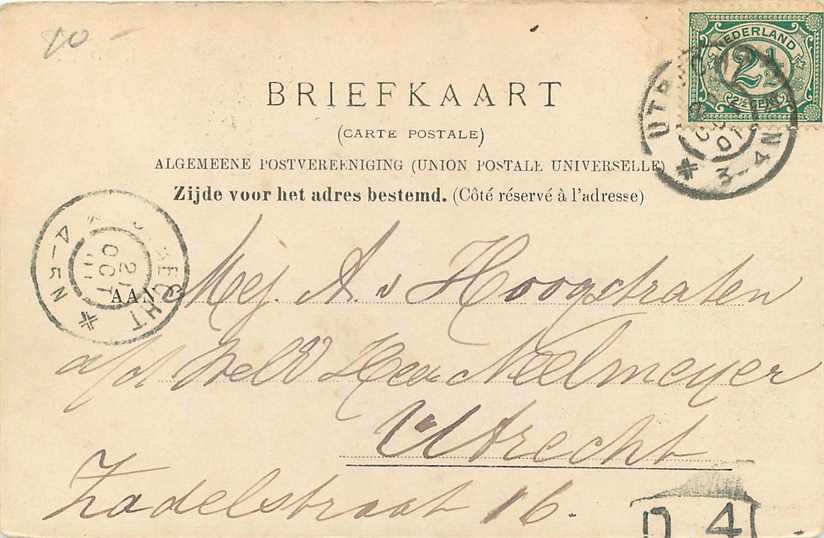 20-
NEDERLAND
2½
2½ CENT
UTRECHT
OCT
01
3-4N
BRIEFKAART
(CARTE POSTALE)
ALGEMEENE POSTVEREENIGING (UNION POSTALE UNIVERSELLE)
Zijde voor het adres bestemd. (Côté réservé à l'adresse)
UTRECHT
21
OCT
01
4-5N
AAN Mej. A. v Hoogstraten
a/d WelEd Heer Neelmeyer
Utrecht
Zadelstraat 16.
D 4